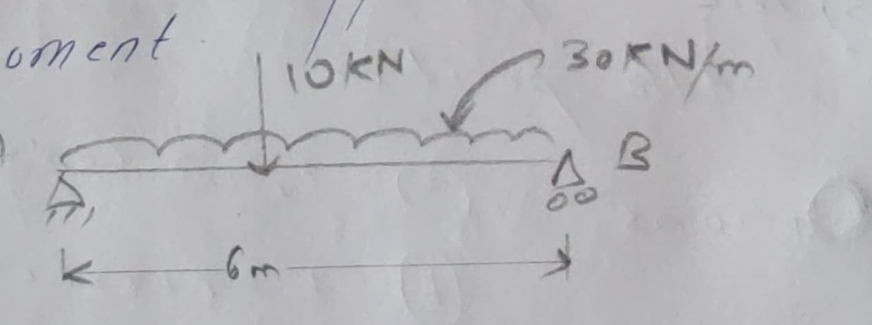 oment
10KN
30KN/m
B
6m